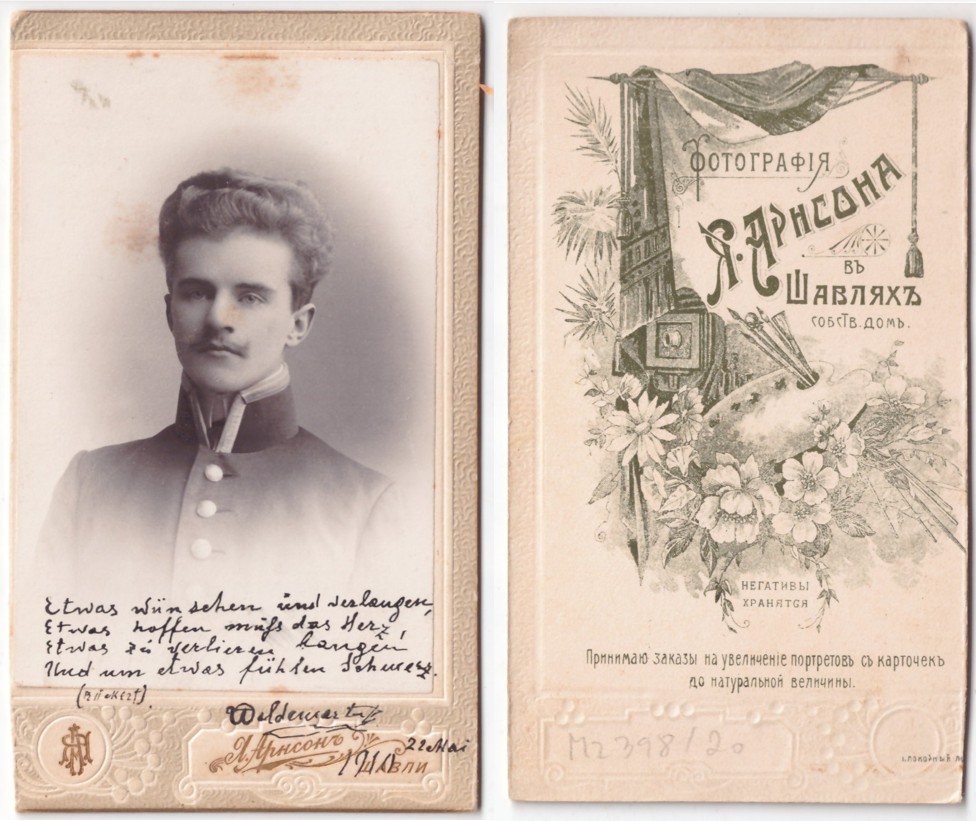 Etwas wünschen und verlangen,
Etwas hoffen muß das Herz,
Etwas zu verlieren bangen
Und um etwas fühlen Schmerz.
(Rückert).
22 Mai
1910
Я. Арнсонъ
Шавли
Фотографія
Я. Арнсона
въ
Шавляхъ
собств. домъ.
Негативы
хранятся
Принимаю заказы на увеличеніе портретовъ съ карточекъ
до натуральной величины.
Mz 398/20